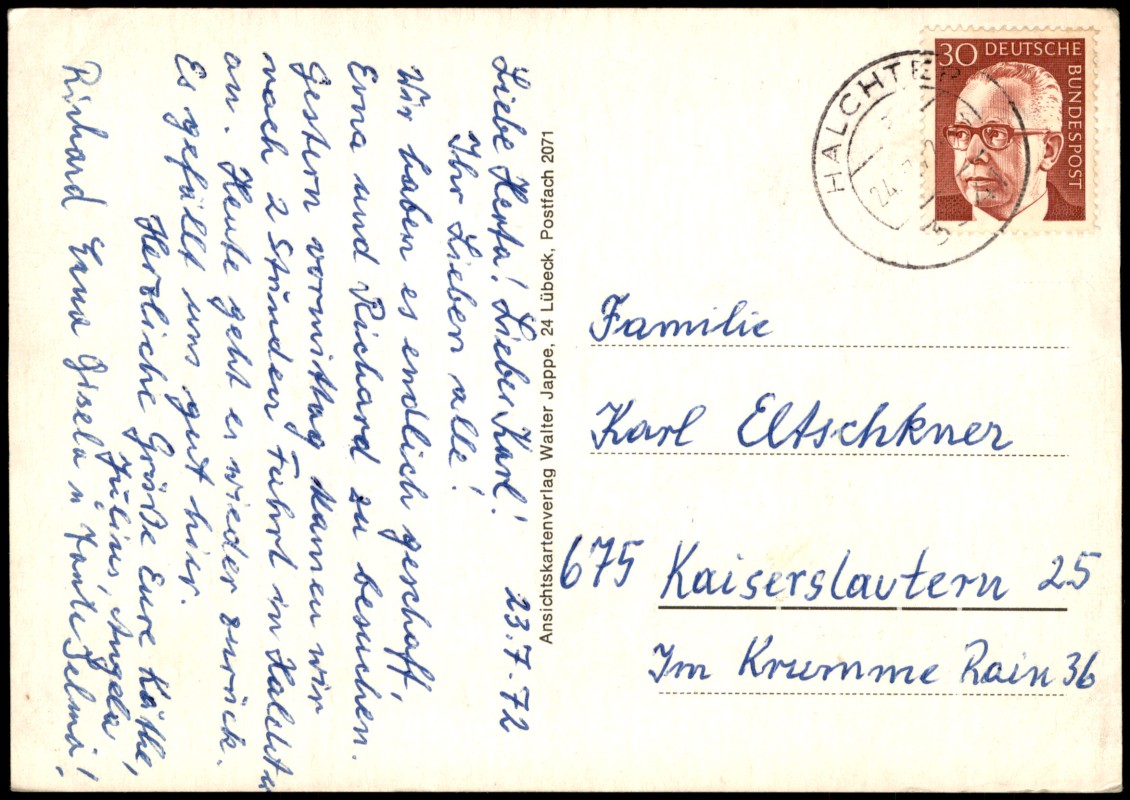 Liebe Herta! Lieber Karl! 23.7.72
Ihr Lieben alle!
Wir haben es endlich geschafft,
Erna und Richard zu besuchen.
Gestern vormittag kamen wir
nach 2 Stunden Fahrt in Halchter
an. Heute geht es wieder zurück.
Es gefällt uns gut hier.
Herzliche Grüße Eure Käthe,
Julius, Angela
Richard Erna Gisela u. Tante Selma!
Ansichtskartenverlag Walter Jappe, 24 Lübeck, Postfach 2071
30 DEUTSCHE
BUNDESPOST
HALCHTER
24.
Familie
Karl Eltschkner
675 Kaiserslautern 25
Im Krumme Rain 36